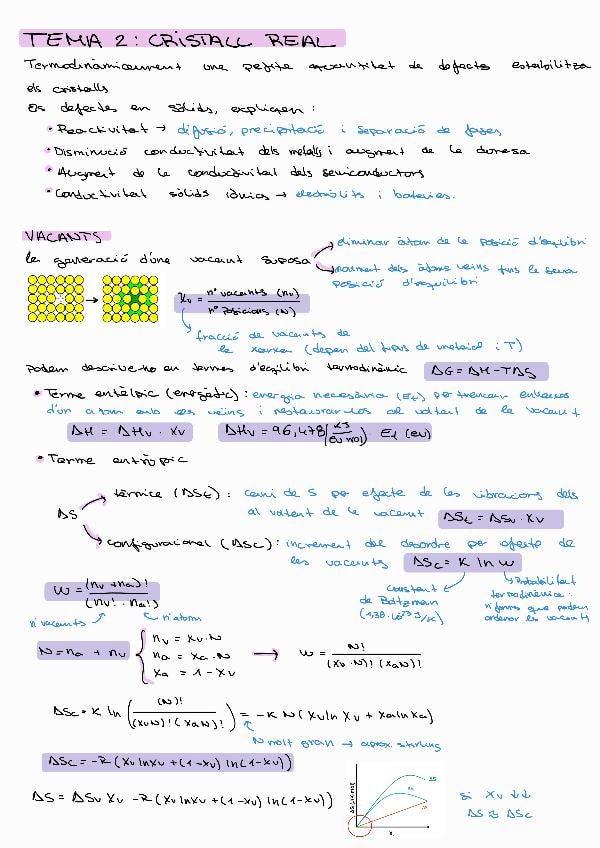 TEMA 2: CRISTALL REAL
Termodinàmicament una petita quantitat de defects estabilitza
els cristalls
Els defectes en sòlids, expliquen:
• Reactivitat → difusió, precipitació i separació de fases
• Disminució conductivitat dels metalls i augment de la duresa
• Augment de la conductivitat dels semiconductors
• Conductivitat sòlids iònics → electròlits i bateries.
VACANTS
la generació d'una vacant suposa
eliminar àtom de la posició d'equilibri
moviment dels àtoms veïns fins la seva
posició d'equilibri
Xv = nº vacants (nv) / nº posicions (N)
fracció de vacants de
la xarxa (depen del tipus de material i T)
podem descriure-ho en termes d'equilibri termodinàmic ΔG = ΔH - TΔS
• Terme entàlpic (energètic): energia necessària (Ef) per trencar enllaços
d'un àtom amb els veïns i restaurar-nos al voltant de la vacant
ΔH = ΔHv · Xv ΔHv = 96,478 (KJ / eV mol) Ef (eV)
• Terme entròpic
ΔS
tèrmica (ΔSt): canvi de S per efecte de les vibracions dels
al voltant de la vacant ΔSt = ΔSv · Xv
configuracional (ΔSc): increment del desordre per efecte de
les vacants ΔSc = K ln W
constant
de Boltzmann
(1,38·10²³ J/K)
Probabilitat
termodinàmica:
n formes que podem
ordenar les vacants
W = (nv + na)! / (nv! · na!)
nº vacants nº àtoms
N = na + nv
nv = Xv · N
na = Xa · N
Xa = 1 - Xv
→ W = N! / (Xv · N)! (Xa N)!
ΔSc = K ln ( (N)! / (XvN)! (XaN)! ) = -K N (Xv ln Xv + Xa ln Xa)
N molt gran → aprox. stirling
ΔSc = -R (Xv ln Xv + (1-Xv) ln (1-Xv))
ΔS = ΔSv Xv - R (Xv ln Xv + (1-Xv) ln (1-Xv))
si Xv ↓↓
ΔS ≅ ΔSc